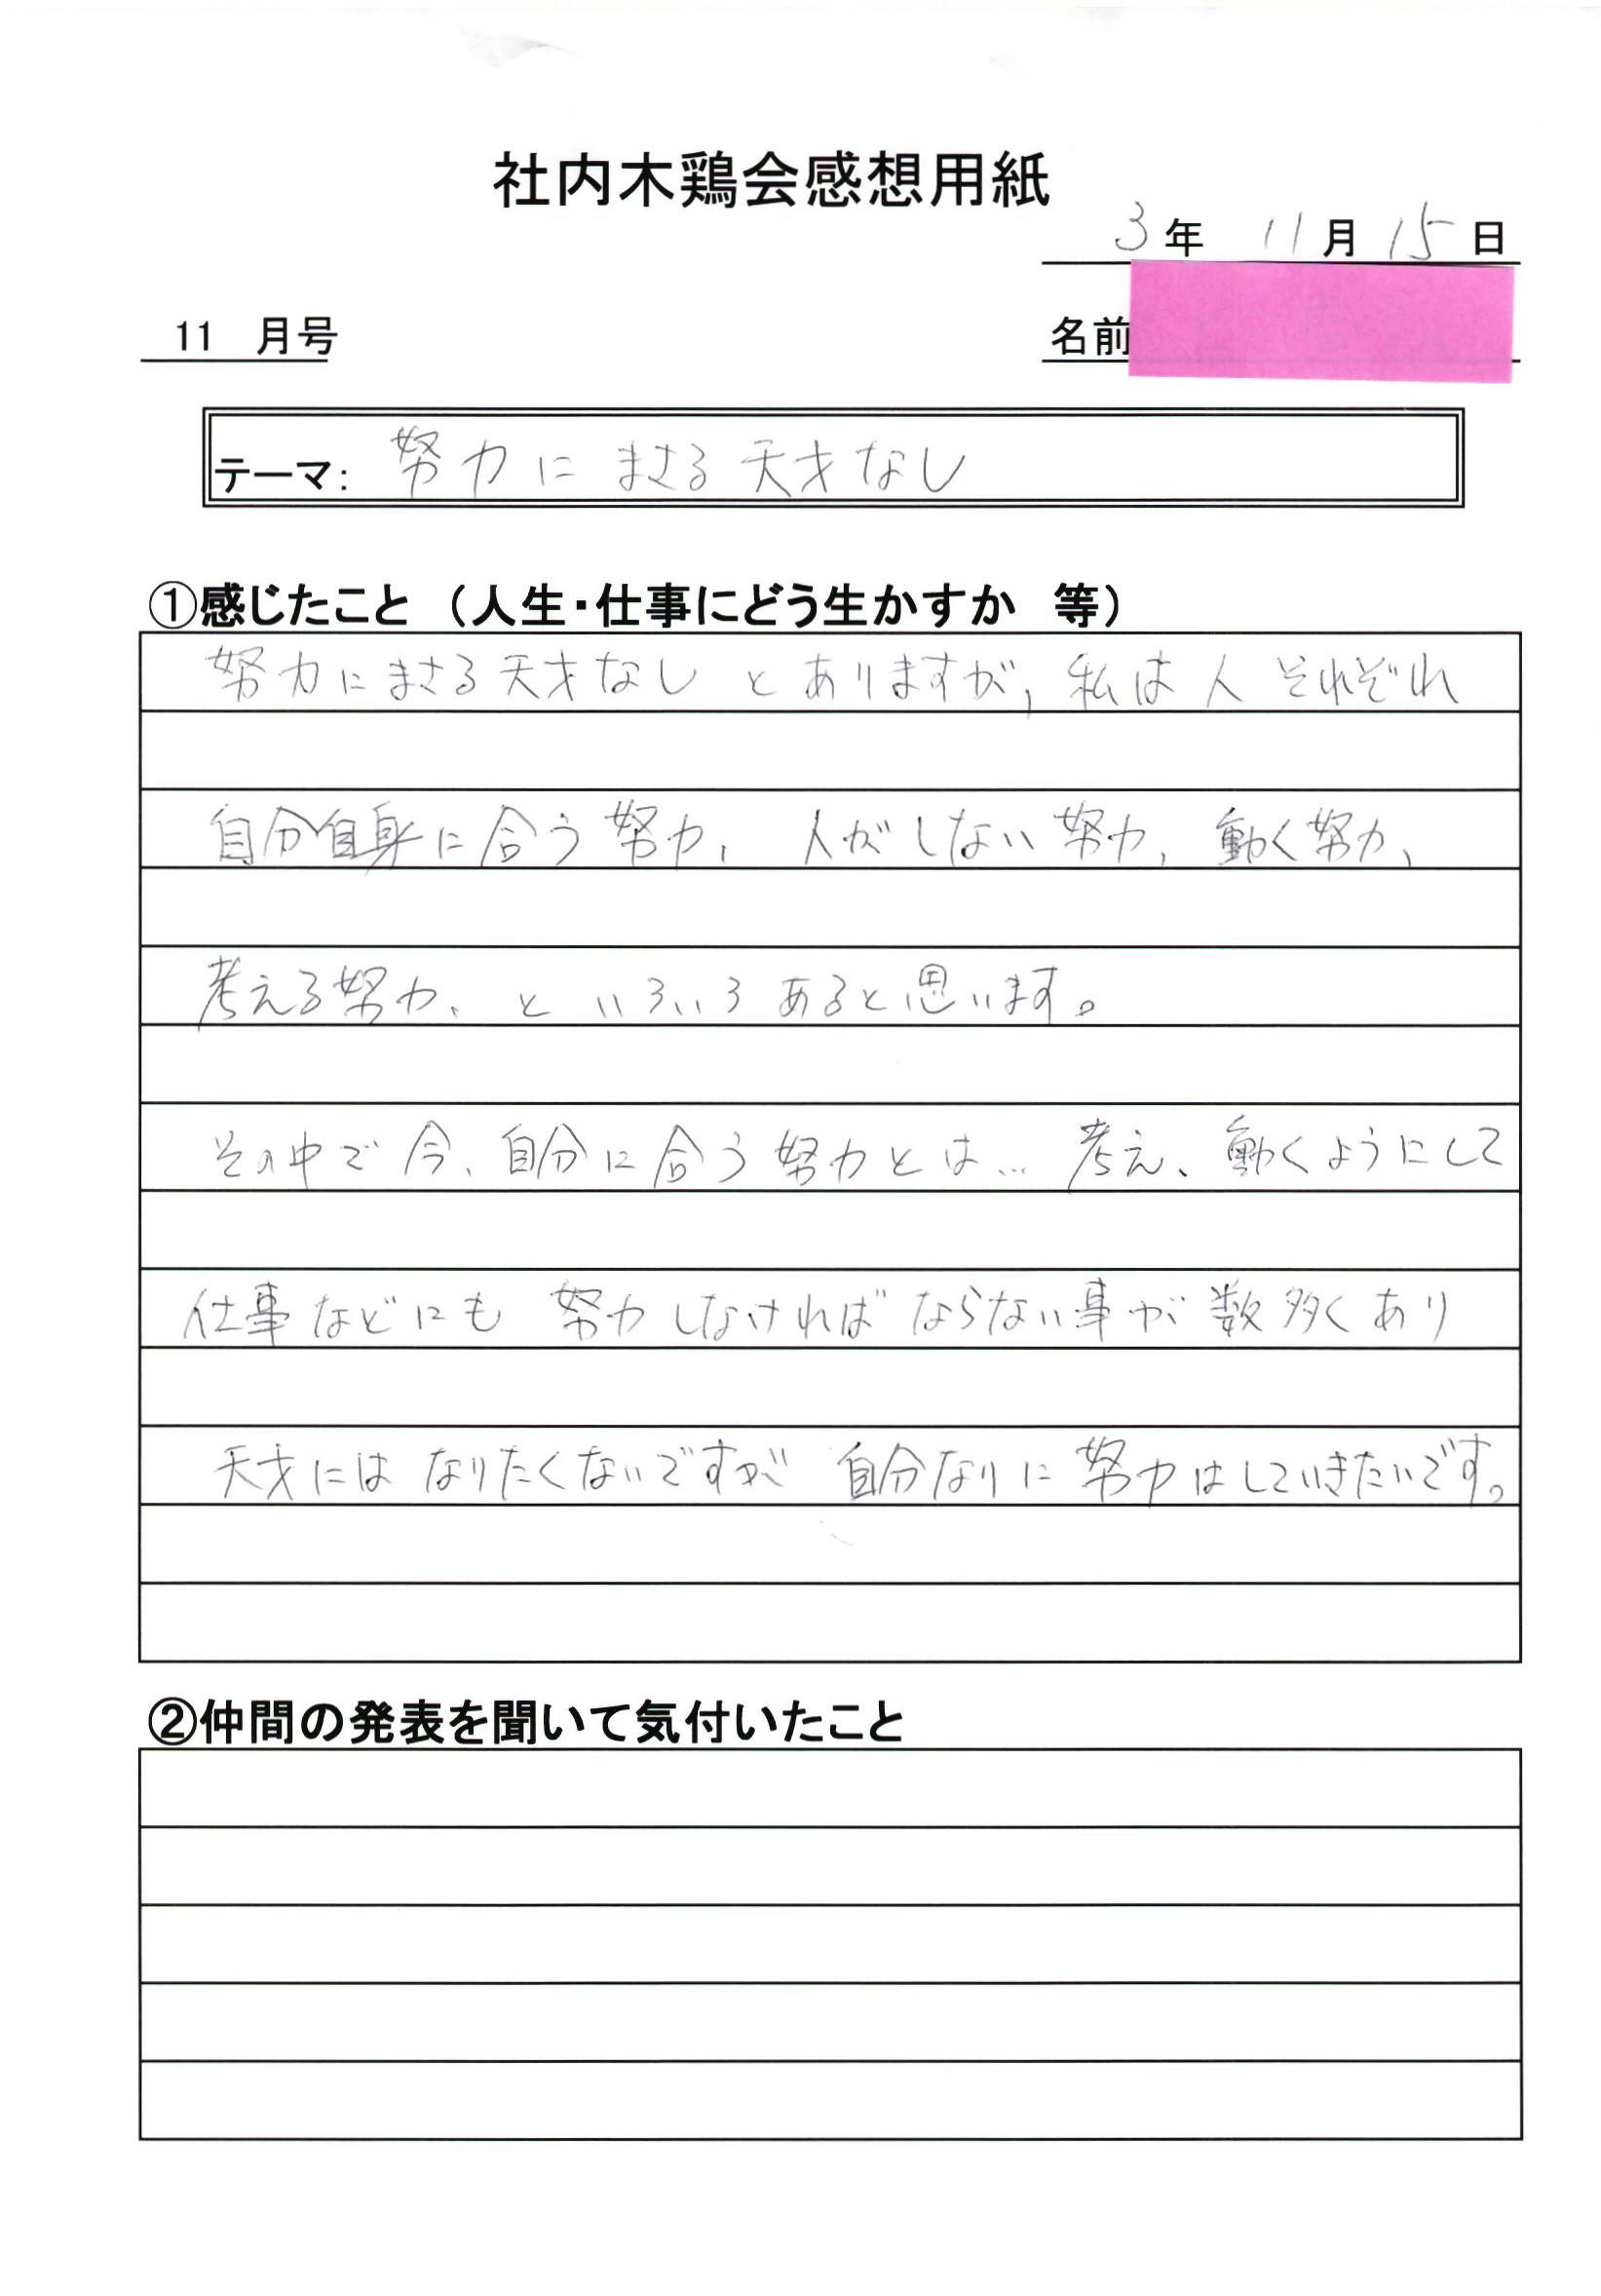 社内木鶏会感想用紙
3年 11月15日
11 月号
名前
テーマ: 努力にまさる天才なし
①感じたこと (人生・仕事にどう生かすか 等)
努力にまさる天才なしとありますが、私は人それぞれ
自分自身に合う努力、人がしない努力、動く努力、
考える努力、といろいろあると思います。
その中で今、自分に合う努力とは… 考え、動くようにして
仕事などにも努力しなければならない事が数多くあり
天才にはなりたくないですが自分なりに努力はしていきたいです。
②仲間の発表を聞いて気付いたこと